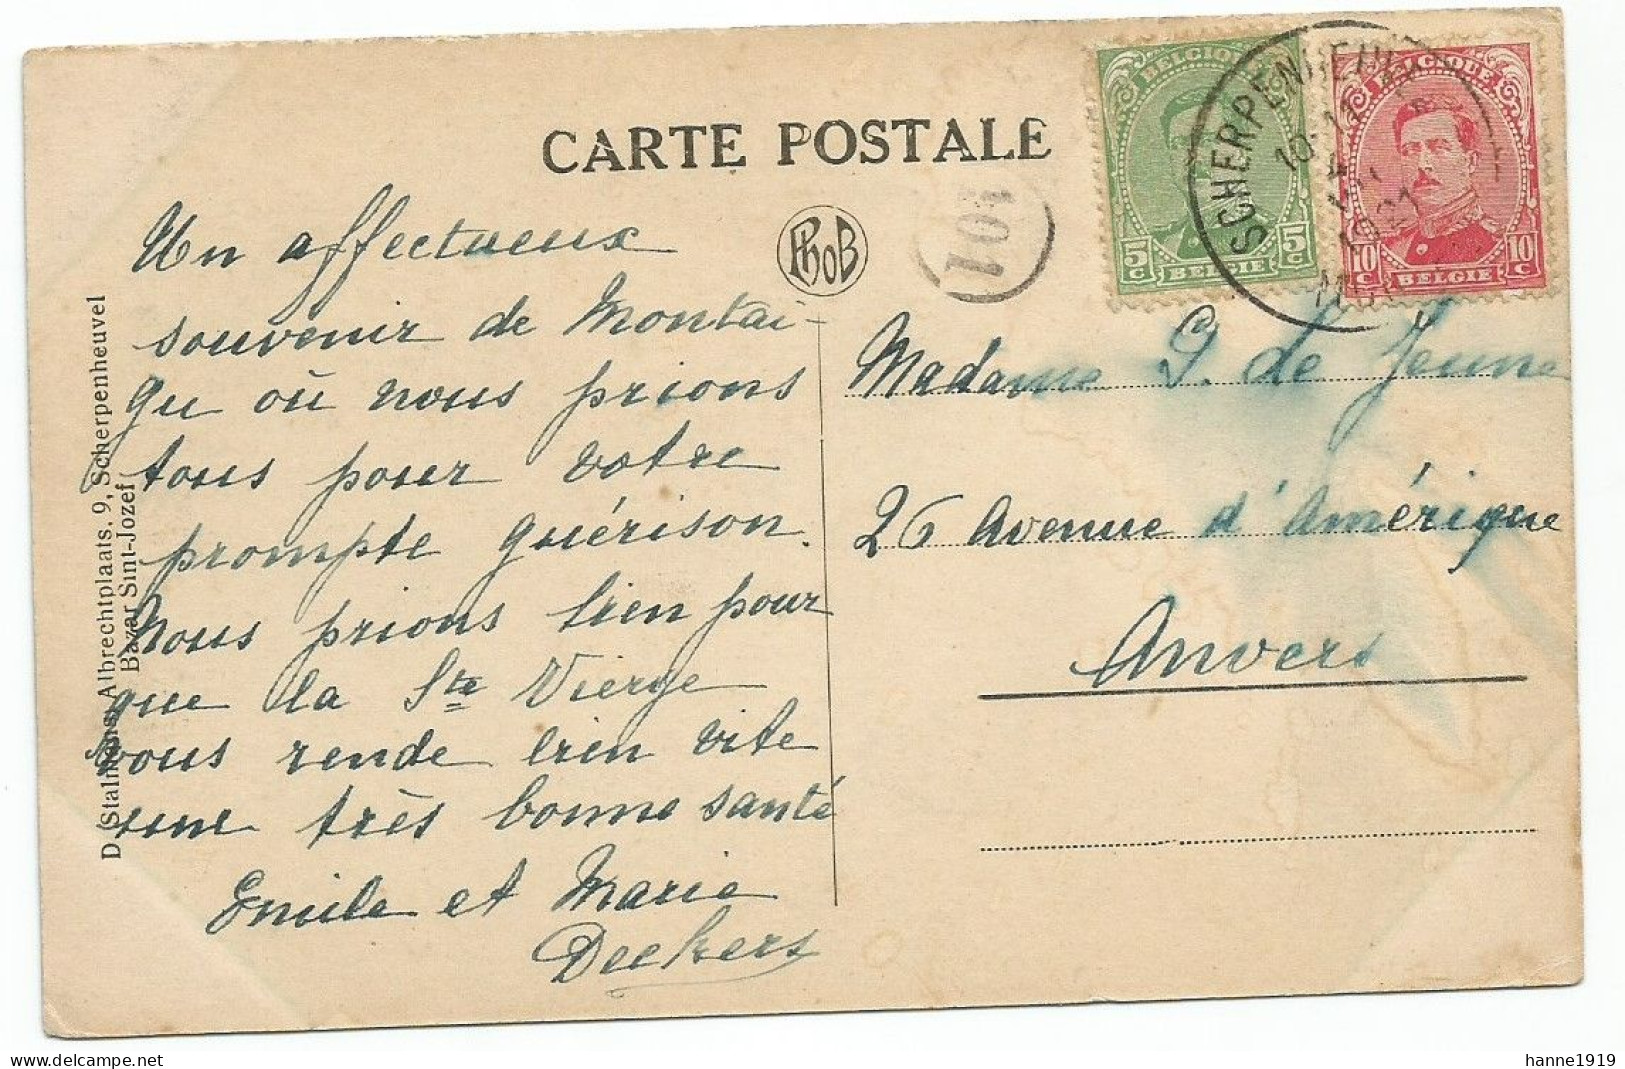 CARTE POSTALE
Un affectueux
souvenir de Montai-
gu où nous prions
tous pour votre
prompte guérison.
Nous prions bien pour
que la Ste Vierge
vous rende bien vite
une très bonne santé
Emile et Marie
Deckers
D. Stalmans, Albrechtplaats, 9, Scherpenheuvel
Bazar Sint-Jozef
PhoB
101
BELGIQUE
5c 5c
BELGIE
BELGIQUE
10c 10c
BELGIE
SCHERPENHEUVEL
1921
Madame J. de Jeune
26 Avenue d'Amérique
Anvers
hanne1919